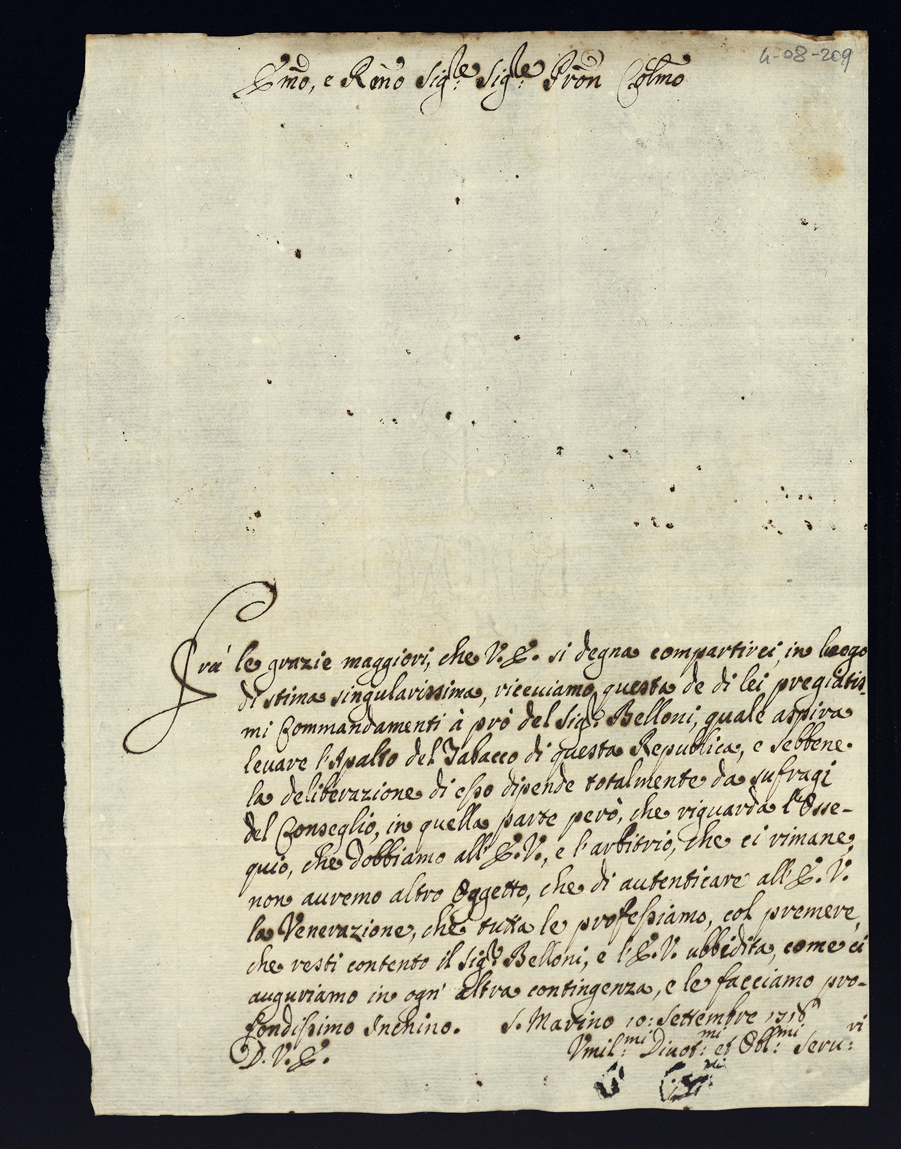 4-08-209
Emo, e Rmo Sigre Sigre Pron Colmo
Fra' le grazie maggiori, che V.E. si degna compartirci, in luogo
di stima singularissima, riceviamo questa de di lei pregiatis-
mi Commandamenti à prò del Sigr Belloni, quale aspira
levare l'Apalto del Tabacco di questa Republica, e sebbene
la deliberazione di esso dipende totalmente da sufragi
del Conseglio, in quella parte però, che riguarda l'Osse-
quio, che dobbiamo all'E.V., e l'arbitrio, che ci rimane,
non auremo altro Oggetto, che di autenticare all'E.V.
la Venerazione, che tutta le professiamo, col premere,
che resti contento il Sigr Belloni, e l'E.V. ubbidita, come ci
auguriamo in ogn' altra contingenza, e le facciamo pro-
fondissimo Inchino. S. Marino 10: Settembre 1718
D.V.E. Vmil:mi Divot:mi et Obl:mi Seru:ri